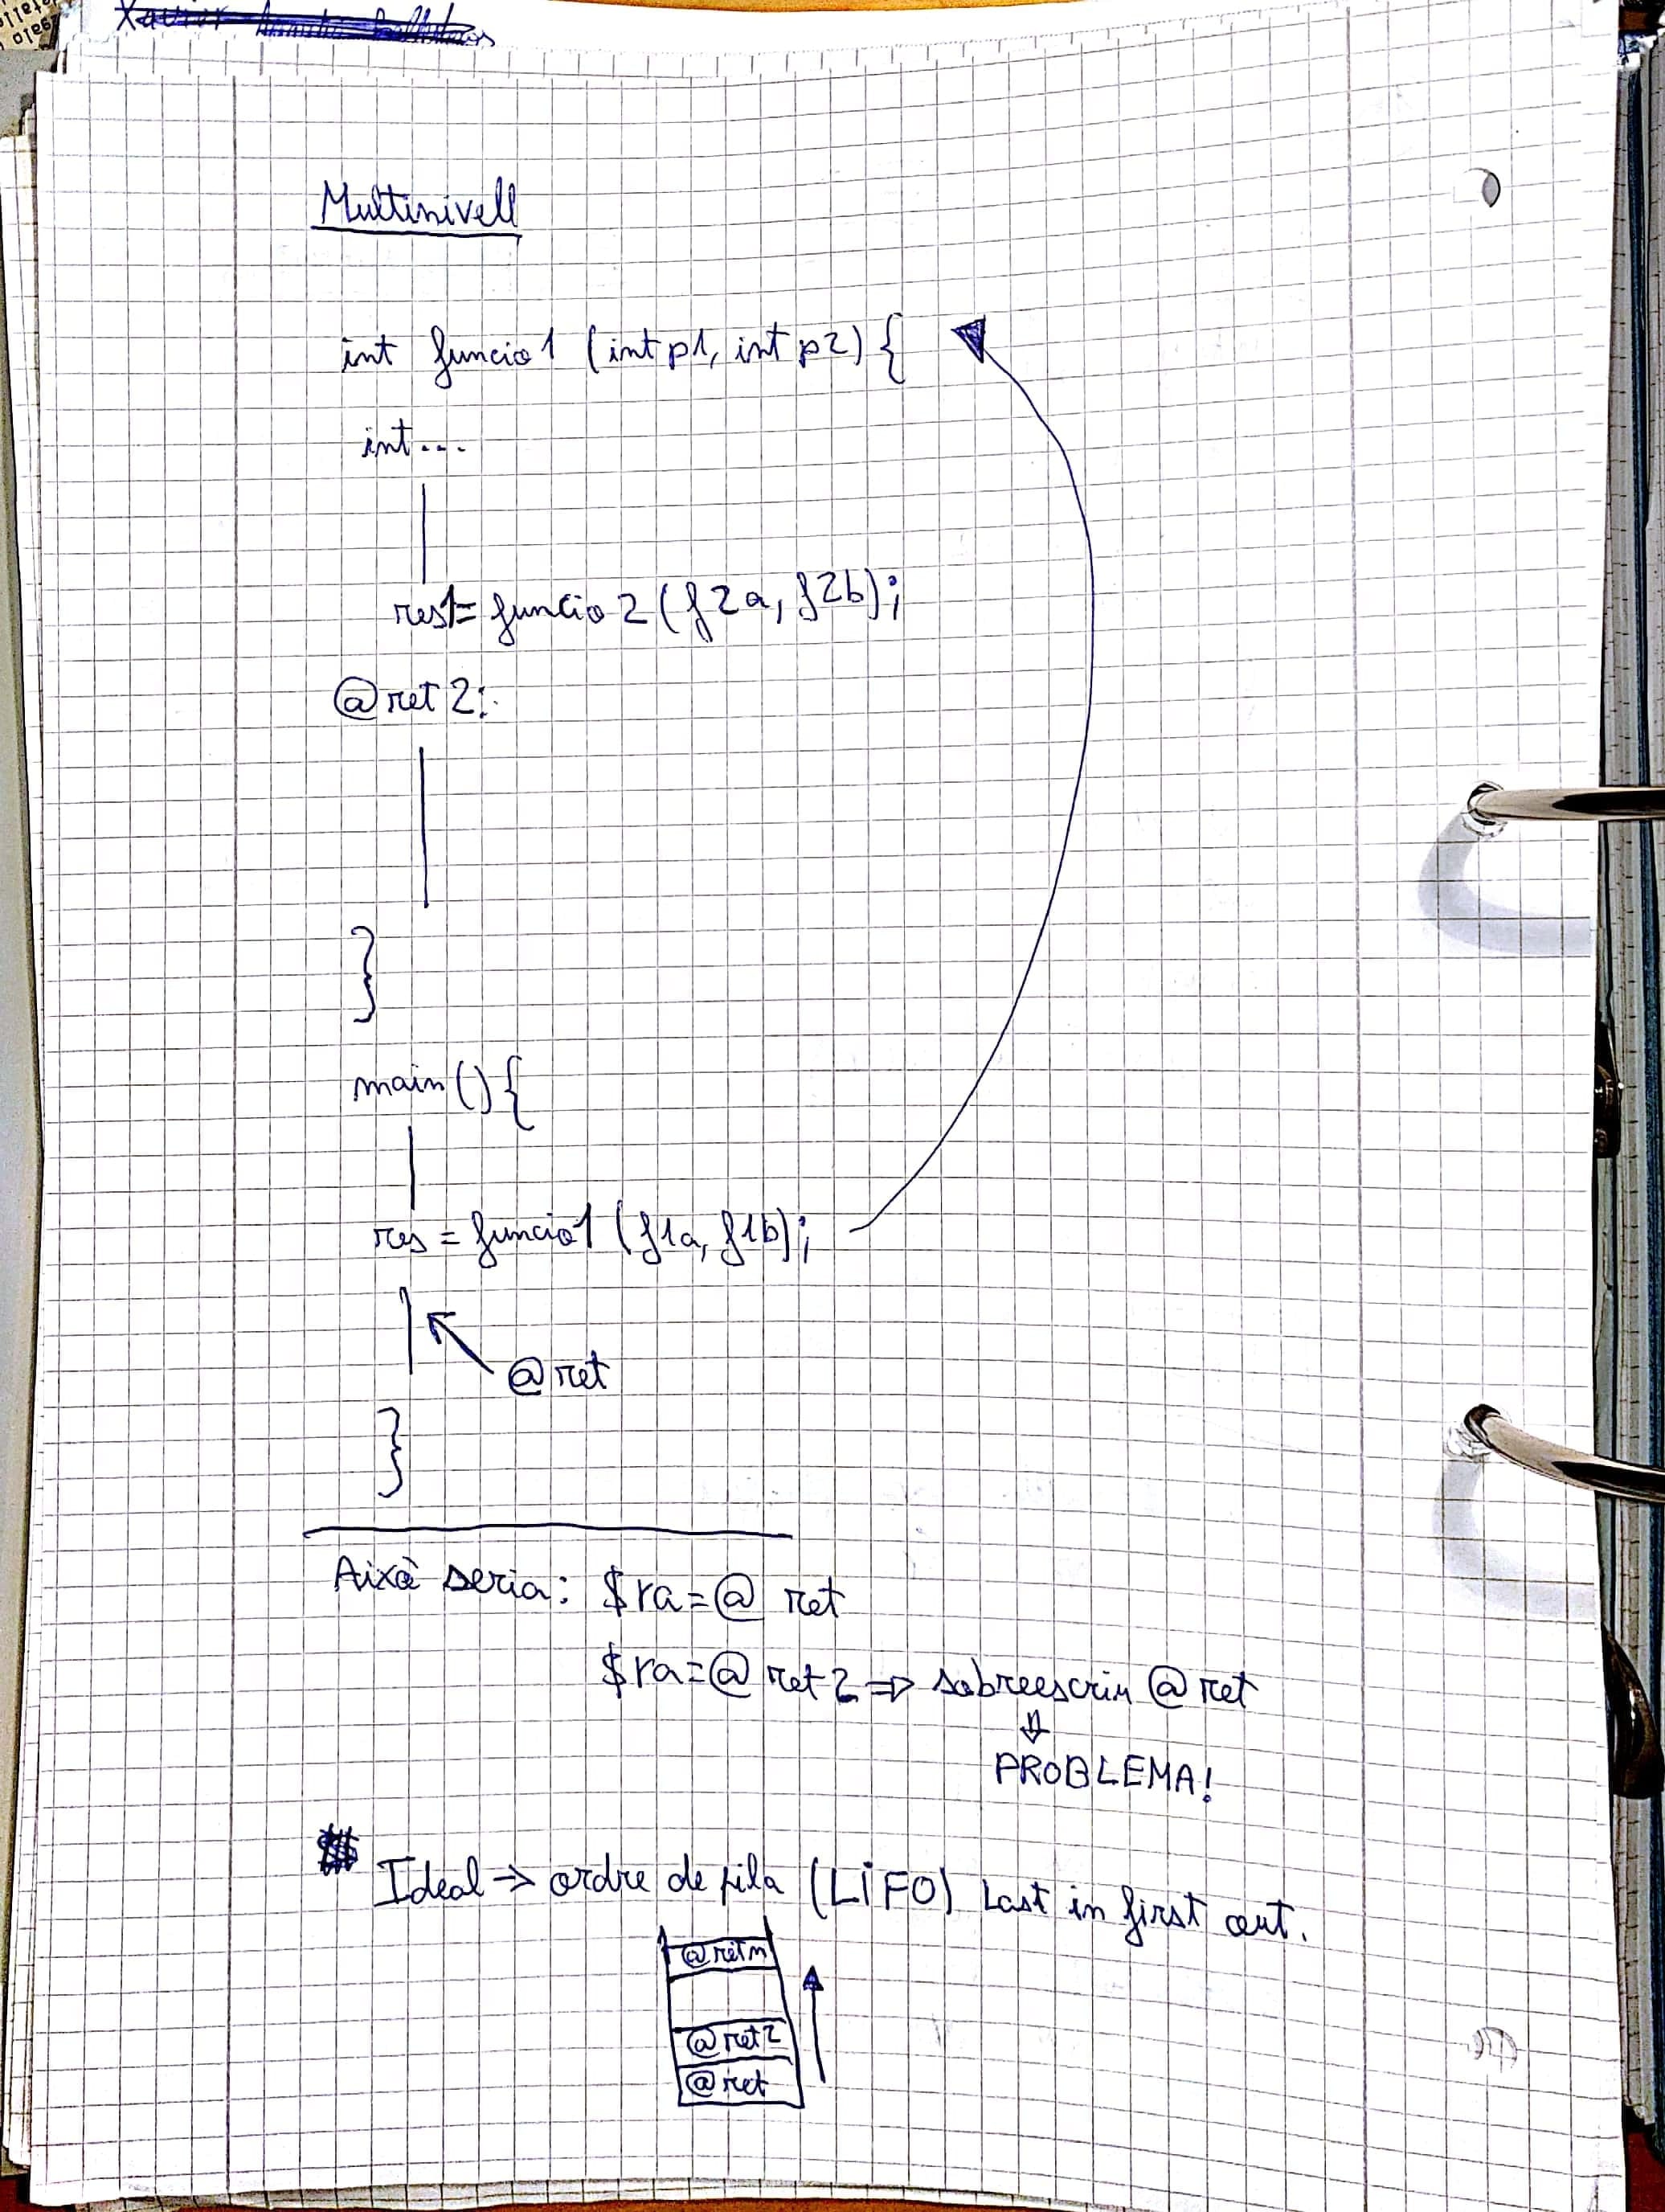 Multinivell
int funcio1 (int p1, int p2) {
int...
res1= funcio2 (f2a, f2b);
@ret2:
}
main() {
res = funcio1 (f1a, f1b);
@ret
}
Aixà seria: $ra=@ ret
$ra=@ ret2 ⇒ sobreescriu @ret
⇓
PROBLEMA!
Ideal → ordre de pila (LiFO) Last in first out.
@retn
@ret2
@ret